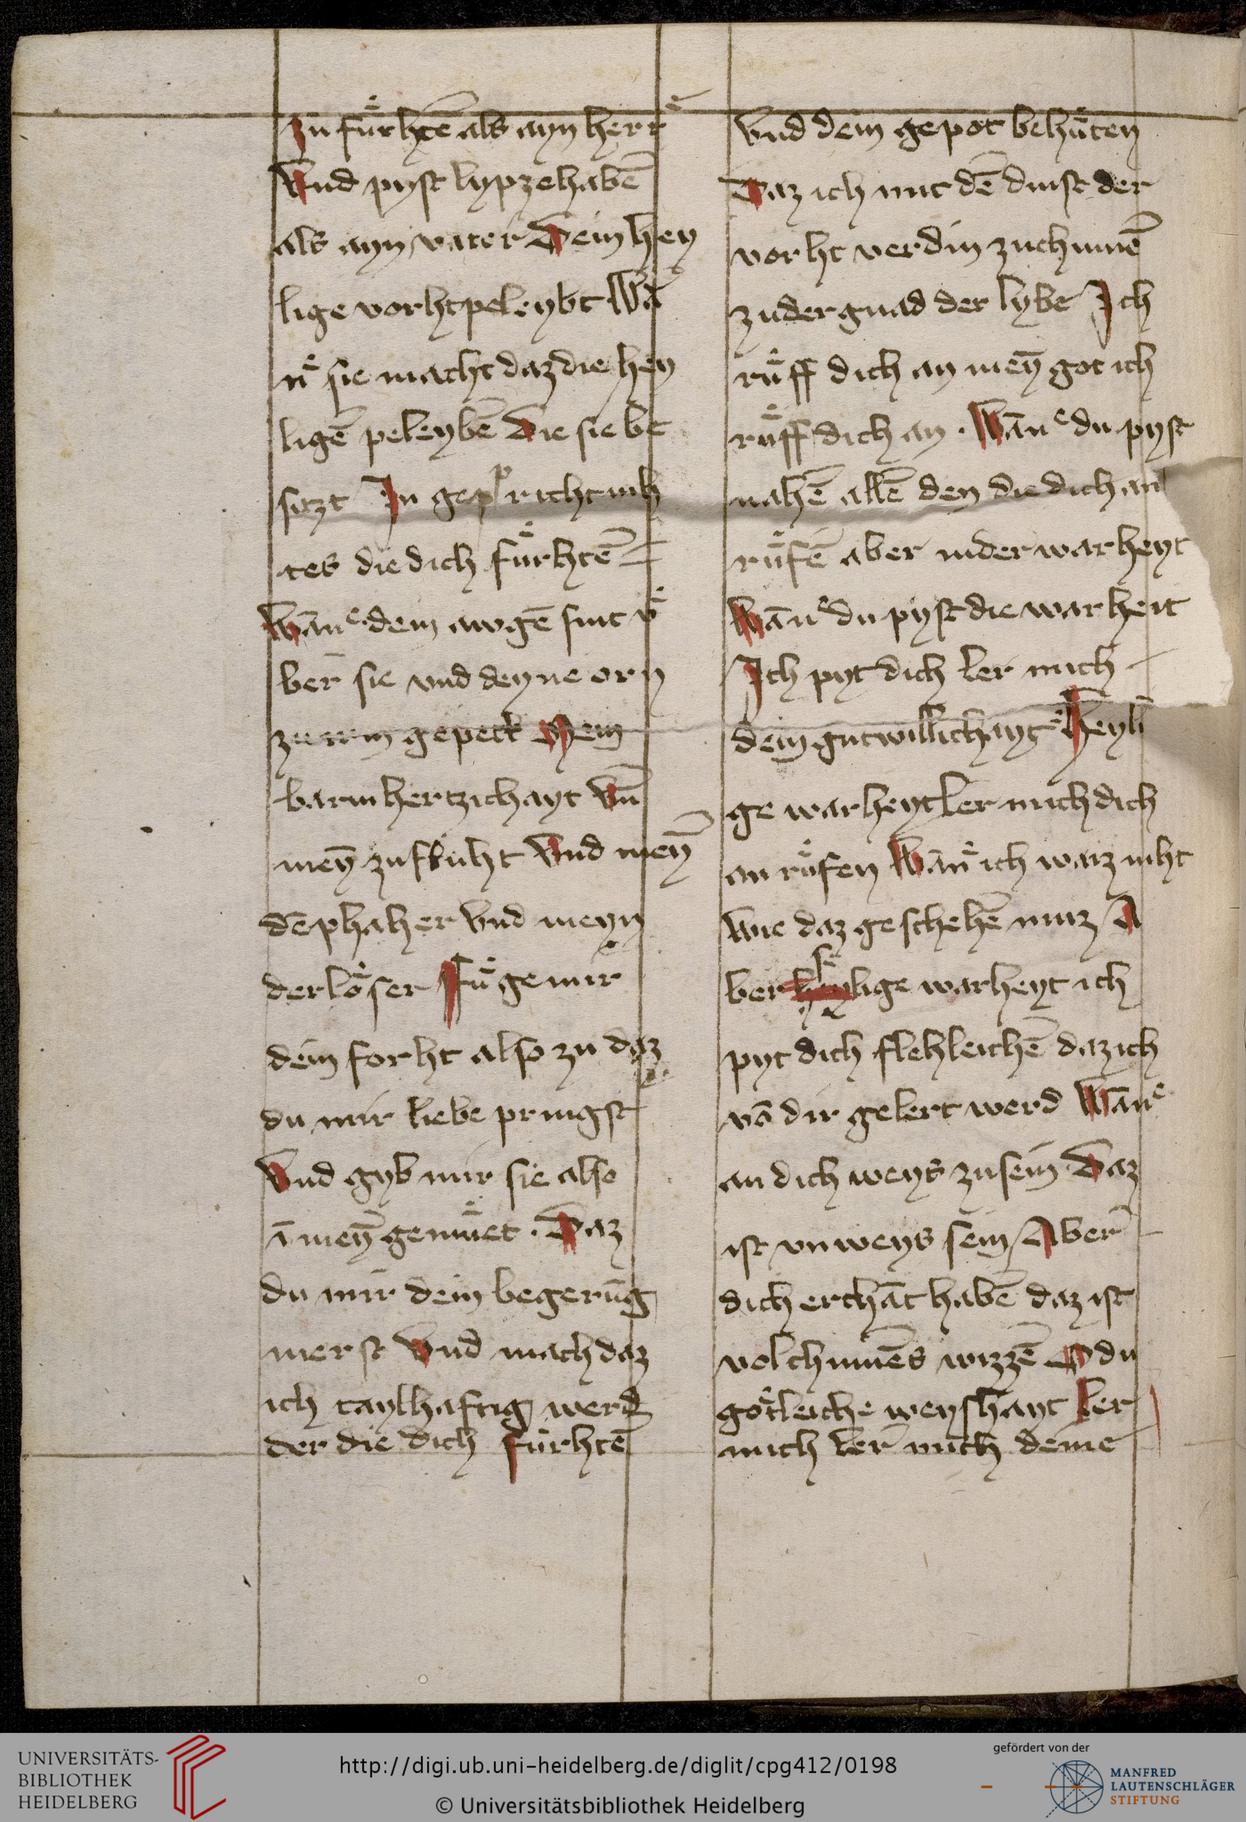 zu fuͤrhtē als ayn herrͤ
Vnd pyst lypzehabē
als ayn vater Dein hey
lige vorht peleybt Wā
nͤ sie macht daz die hey
ligē peleybē Die sie be
sitzt In gepricht nih
tes die dich fuͤrhtē
Wānͤ dein awgē sint vͤ
ber sie vnd deyne orn
zu irm gepett Mein
barmhertzichayt Vn̄
meȳ zufluht Vnd meȳ
dēphaher Vnd meyn
derloͤser Fuͤge mir
dein forht also zu daz
du mir liebe pringst
Vnd gyb mir sie also
ī meȳ gemuͤet . Daz
du mir dein begerūg
merst Vnd mach daz
ich taylhaftig werd
der die dich fuͤrhtē
Vnd dein gepot behuͤten
Daz ich mit dē dinst der
vorht verdin zuchumē
zu der gnad der lybe Ich
ruͤff dich an meȳ got ich
ruͤff dich an . Wānͤ du pyst
nahē allē den die dich an
ruͤfē aber in der warheyt
Wānͤ du pyst die warheit
Ich pyt dich ler mich
dein gutwillichayt Heyli
ge warheyt ler mich dich
an ruͤfen Wānͤ ich waiz niht
wie daz geschehē muz A
ber selige warheyt ich
pyt dich flehleichē daz ich
vō dir gelert werd Wānͤ
an dich weys zusein Daz
ist vnweys sein Aber
dich erchāt habē daz ist
volchumēs wizzē O du
goͤtleiche weyshayt ler
mich ler mich deine
UNIVERSITÄTS-
BIBLIOTHEK
HEIDELBERG
http://digi.ub.uni-heidelberg.de/diglit/cpg412/0198
© Universitätsbibliothek Heidelberg
gefördert von der
MANFRED
LAUTENSCHLÄGER
STIFTUNG